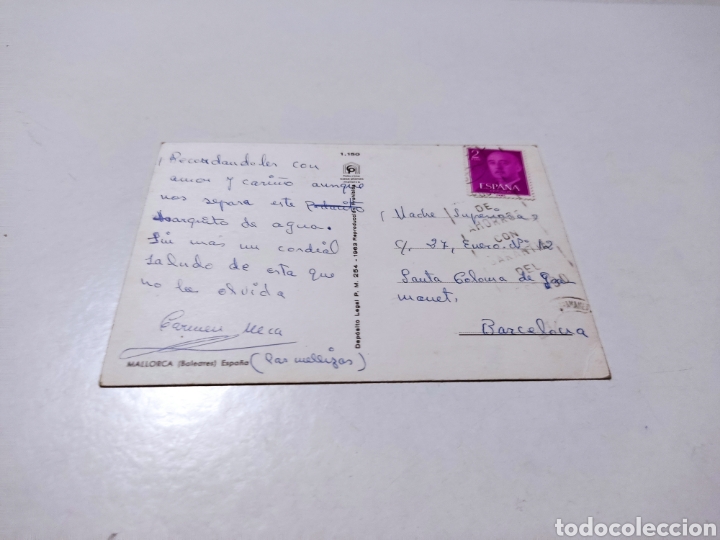 1.150
Recordandoles con
amor y cariño aunque
nos separa este
charquito de agua.
Sin mas un cordial
saludo de esta que
no les olvida
Carmen Meca
(Las mellizas)
MALLORCA (Baleares) España
Depósito Legal P. M. 254 - 1963 Reproducción Prohibida
2
ESPAÑA
DE
CON
DEL
Madre Superiora
C/, 27, Enero. Nº 12
Santa Coloma de Gra
manet,
Barcelona
todocoleccion